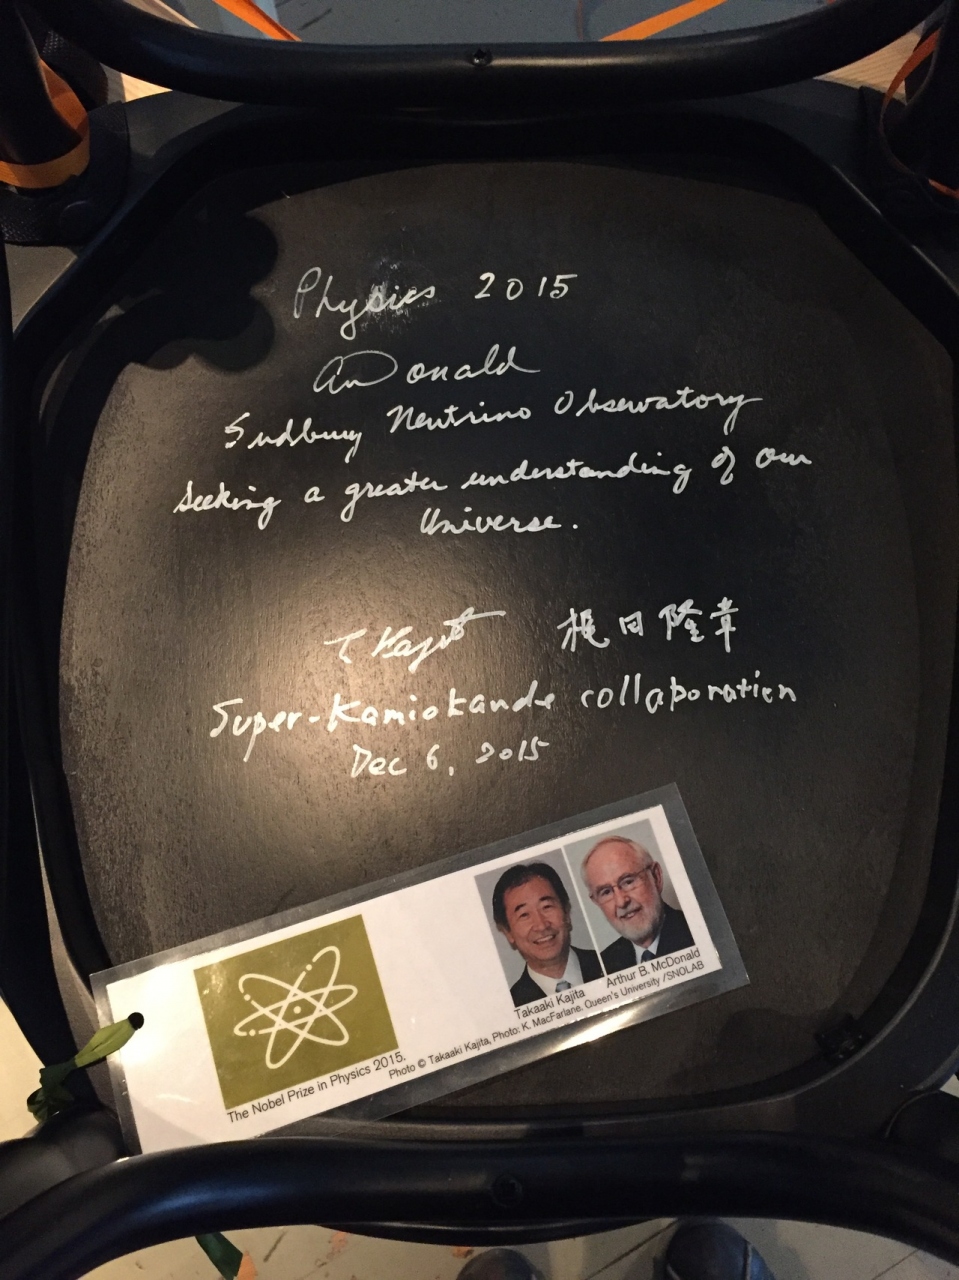 Physics 2015
McDonald
Sudbury Neutrino Observatory
Seeking a greater understanding of our
Universe.
T Kajita 梶田隆章
Super-Kamiokande collaboration
Dec 6, 2015
The Nobel Prize in Physics 2015.
Takaaki Kajita
Arthur B. McDonald
Photo © Takaaki Kajita, Photo: K. MacFarlane. Queen's University /SNOLAB